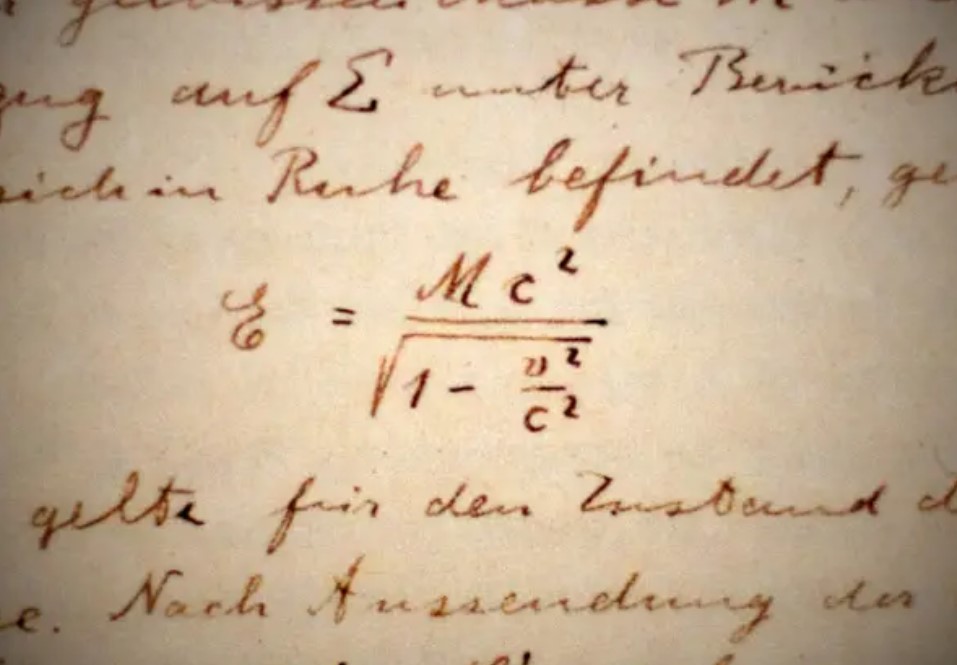 auf Σ unter
sich in Ruhe befindet,
E = Mc² / √(1 - v²/c²)
gelte für den Zustand
Nach Aussendung der